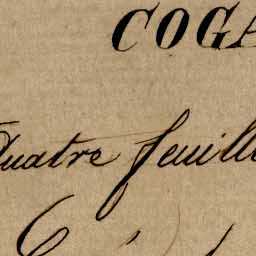 COGA
Quatre feuille